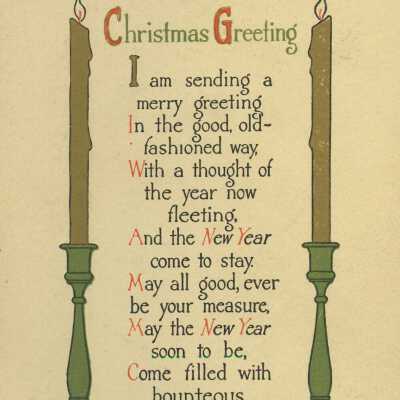 Christmas Greeting
I am sending a
merry greeting
In the good, old-
fashioned way,
With a thought of
the year now
fleeting,
And the New Year
come to stay.
May all good, ever
be your measure,
May the New Year
soon to be,
Come filled with
bounteous